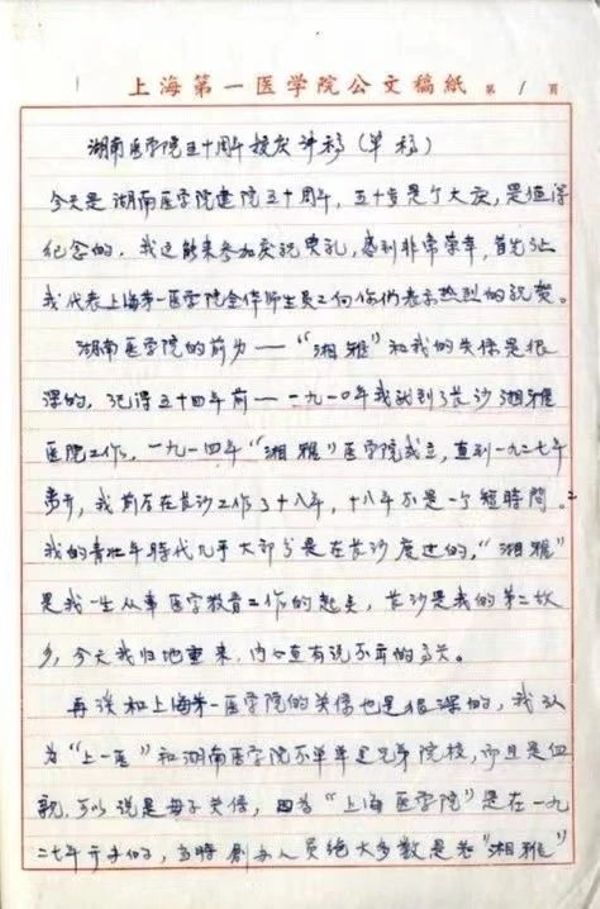 上海第一医学院公文稿紙 第 1 頁
湖南医学院五十周年校庆讲稿(草稿)
今天是湖南医学院建院五十周年,五十岁是个大庆,是值得
纪念的,我这能来参加庆祝典礼,感到非常荣幸,首先让
我代表上海第一医学院全体师生员工向你们表示热烈的祝贺。
湖南医学院的前身——“湘雅”和我的关係是很
深的,记得五十四年前——一九一〇年我就到了长沙湘雅
医院工作,一九一四年“湘雅”医学院成立,直到一九二七年
离开,我前后在长沙工作了十八年,十八年不是一个短時間。
我的青壮年時代几乎大部分是在长沙度过的,“湘雅”
是我一生从事医学教育工作的起点,长沙是我的第二故
乡,今天我归地重来,内心直有说不出的高兴。
再谈和上海第一医学院的关係也是很深的,我认
为“上一医”和湖南医学院不单单是兄弟院校,而且是血
親,可以说是母子关係,因为“上海医学院”是在一九
二七年开办的,当時創办人员绝大多数是老“湘雅”